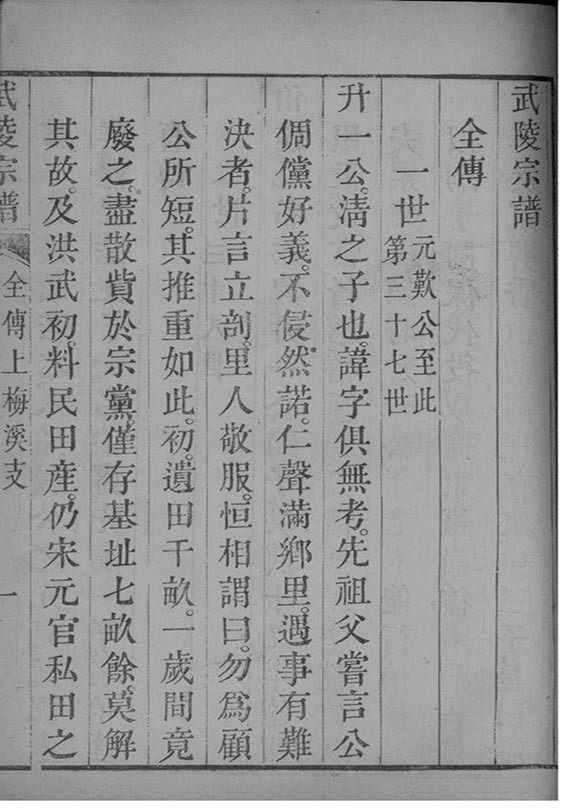 武陵宗譜
全傳
一世
元歎公至此
第三十七世
升一公。淸之子也。諱字俱無考。先祖父嘗言公
倜儻好義。不侵然諾。仁聲滿鄉里。遇事有難
決者。片言立剖。里人敬服。恒相謂曰。勿爲顧
公所短。其推重如此。初。遺田千畝。一歲間竟
廢之。盡散貲於宗黨。僅存基址七畝餘。莫解
其故。及洪武初。料民田産。仍宋元官私田之
武陵宗譜
全傳上梅溪支
一